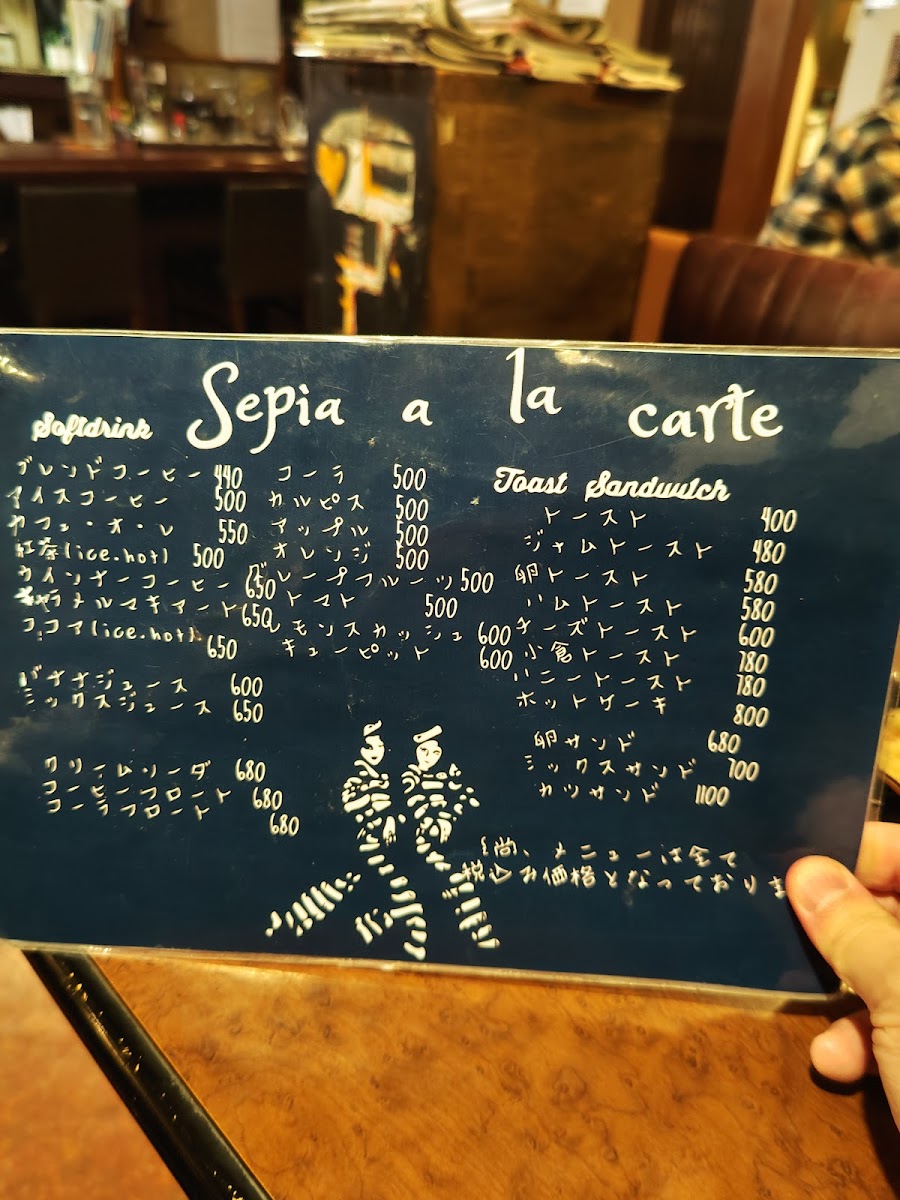 Sepia a la carte
Softdrink
ブレンドコーヒー 440
アイスコーヒー 500
カフェ・オ・レ 550
紅茶(ice.hot) 500
ウインナーコーヒー 650
キャラメルマキアート 650
ココア(ice.hot) 650
バナナジュース 600
ミックスジュース 650
クリームソーダ 680
コーヒーフロート 680
コーラフロート 680
コーラ 500
カルピス 500
アップル 500
オレンジ 500
グレープフルーツ 500
トマト 500
レモンスカッシュ 600
キューピット 600
Toast Sandwitch
トースト 400
ジャムトースト 480
卵トースト 580
ハムトースト 580
チーズトースト 600
小倉トースト 780
ハニートースト 780
ホットケーキ 800
卵サンド 680
ミックスサンド 700
カツサンド 1100
尚、メニューは全て
税込お価格となっておりま